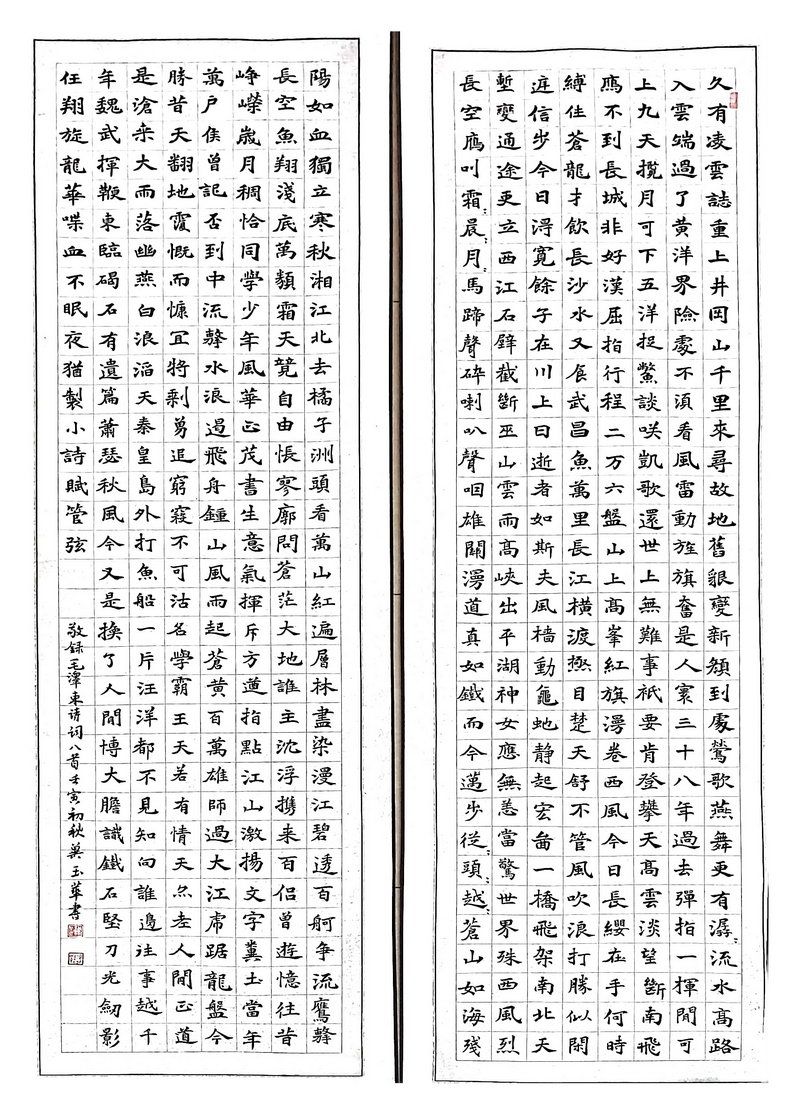 久有凌雲誌重上井岡山千里來尋故地舊貌變新顏到處鶯歌燕舞更有潺〻流水高路
入雲端過了黃洋界險處不須看風雷動旌旗奮是人寰三十八年過去彈指一揮間可
上九天攬月可下五洋捉鱉談咲凱歌還世上無難事祇要肯登攀天高雲淡望斷南飛
鴈不到長城非好漢屈指行程二万六盤山上高峯紅旗漫卷西風今日長纓在手何時
縛住蒼龍才飲長沙水又食武昌魚萬里長江橫渡極目楚天舒不管風吹浪打勝似閑
庭信步今日得寬餘子在川上曰逝者如斯夫風檣動龜蛇静起宏啚一橋飛架南北天
塹變通途更立西江石壁截斷巫山雲雨高峽出平湖神女應無恙當驚世界殊西風烈
長空鴈叫霜〻晨〻月〻馬蹄聲碎喇叭聲咽雄關漫道真如鐵而今邁步從〻頭〻越〻蒼山如海殘
陽如血獨立寒秋湘江北去橘子洲頭看萬山紅遍層林盡染漫江碧透百舸爭流鷹擊
長空魚翔淺底萬類霜天競自由悵寥廓問蒼茫大地誰主沈浮攜来百侶曾遊憶往昔
崢嶸歲月稠恰同學少年風華正茂書生意氣揮斥方遒指點江山激揚文字糞土當年
萬户侯曾記否到中流擊水浪遏飛舟鍾山風雨起蒼黃百萬雄師過大江虎踞龍盤今
勝昔天翻地覆慨而慷宜將剩勇追窮寇不可沽名學霸王天若有情天亦老人間正道
是滄桒大雨落幽燕白浪滔天秦皇島外打魚船一片汪洋都不見知向誰邊往事越千
年魏武揮鞭東臨碣石有遺篇蕭瑟秋風今又是換了人間博大膽識鐵石堅刀光劍影
任翔旋龍華喋血不眠夜猶製小詩賦管弦
敬録毛澤東诗词八首壬寅初秋玉華書